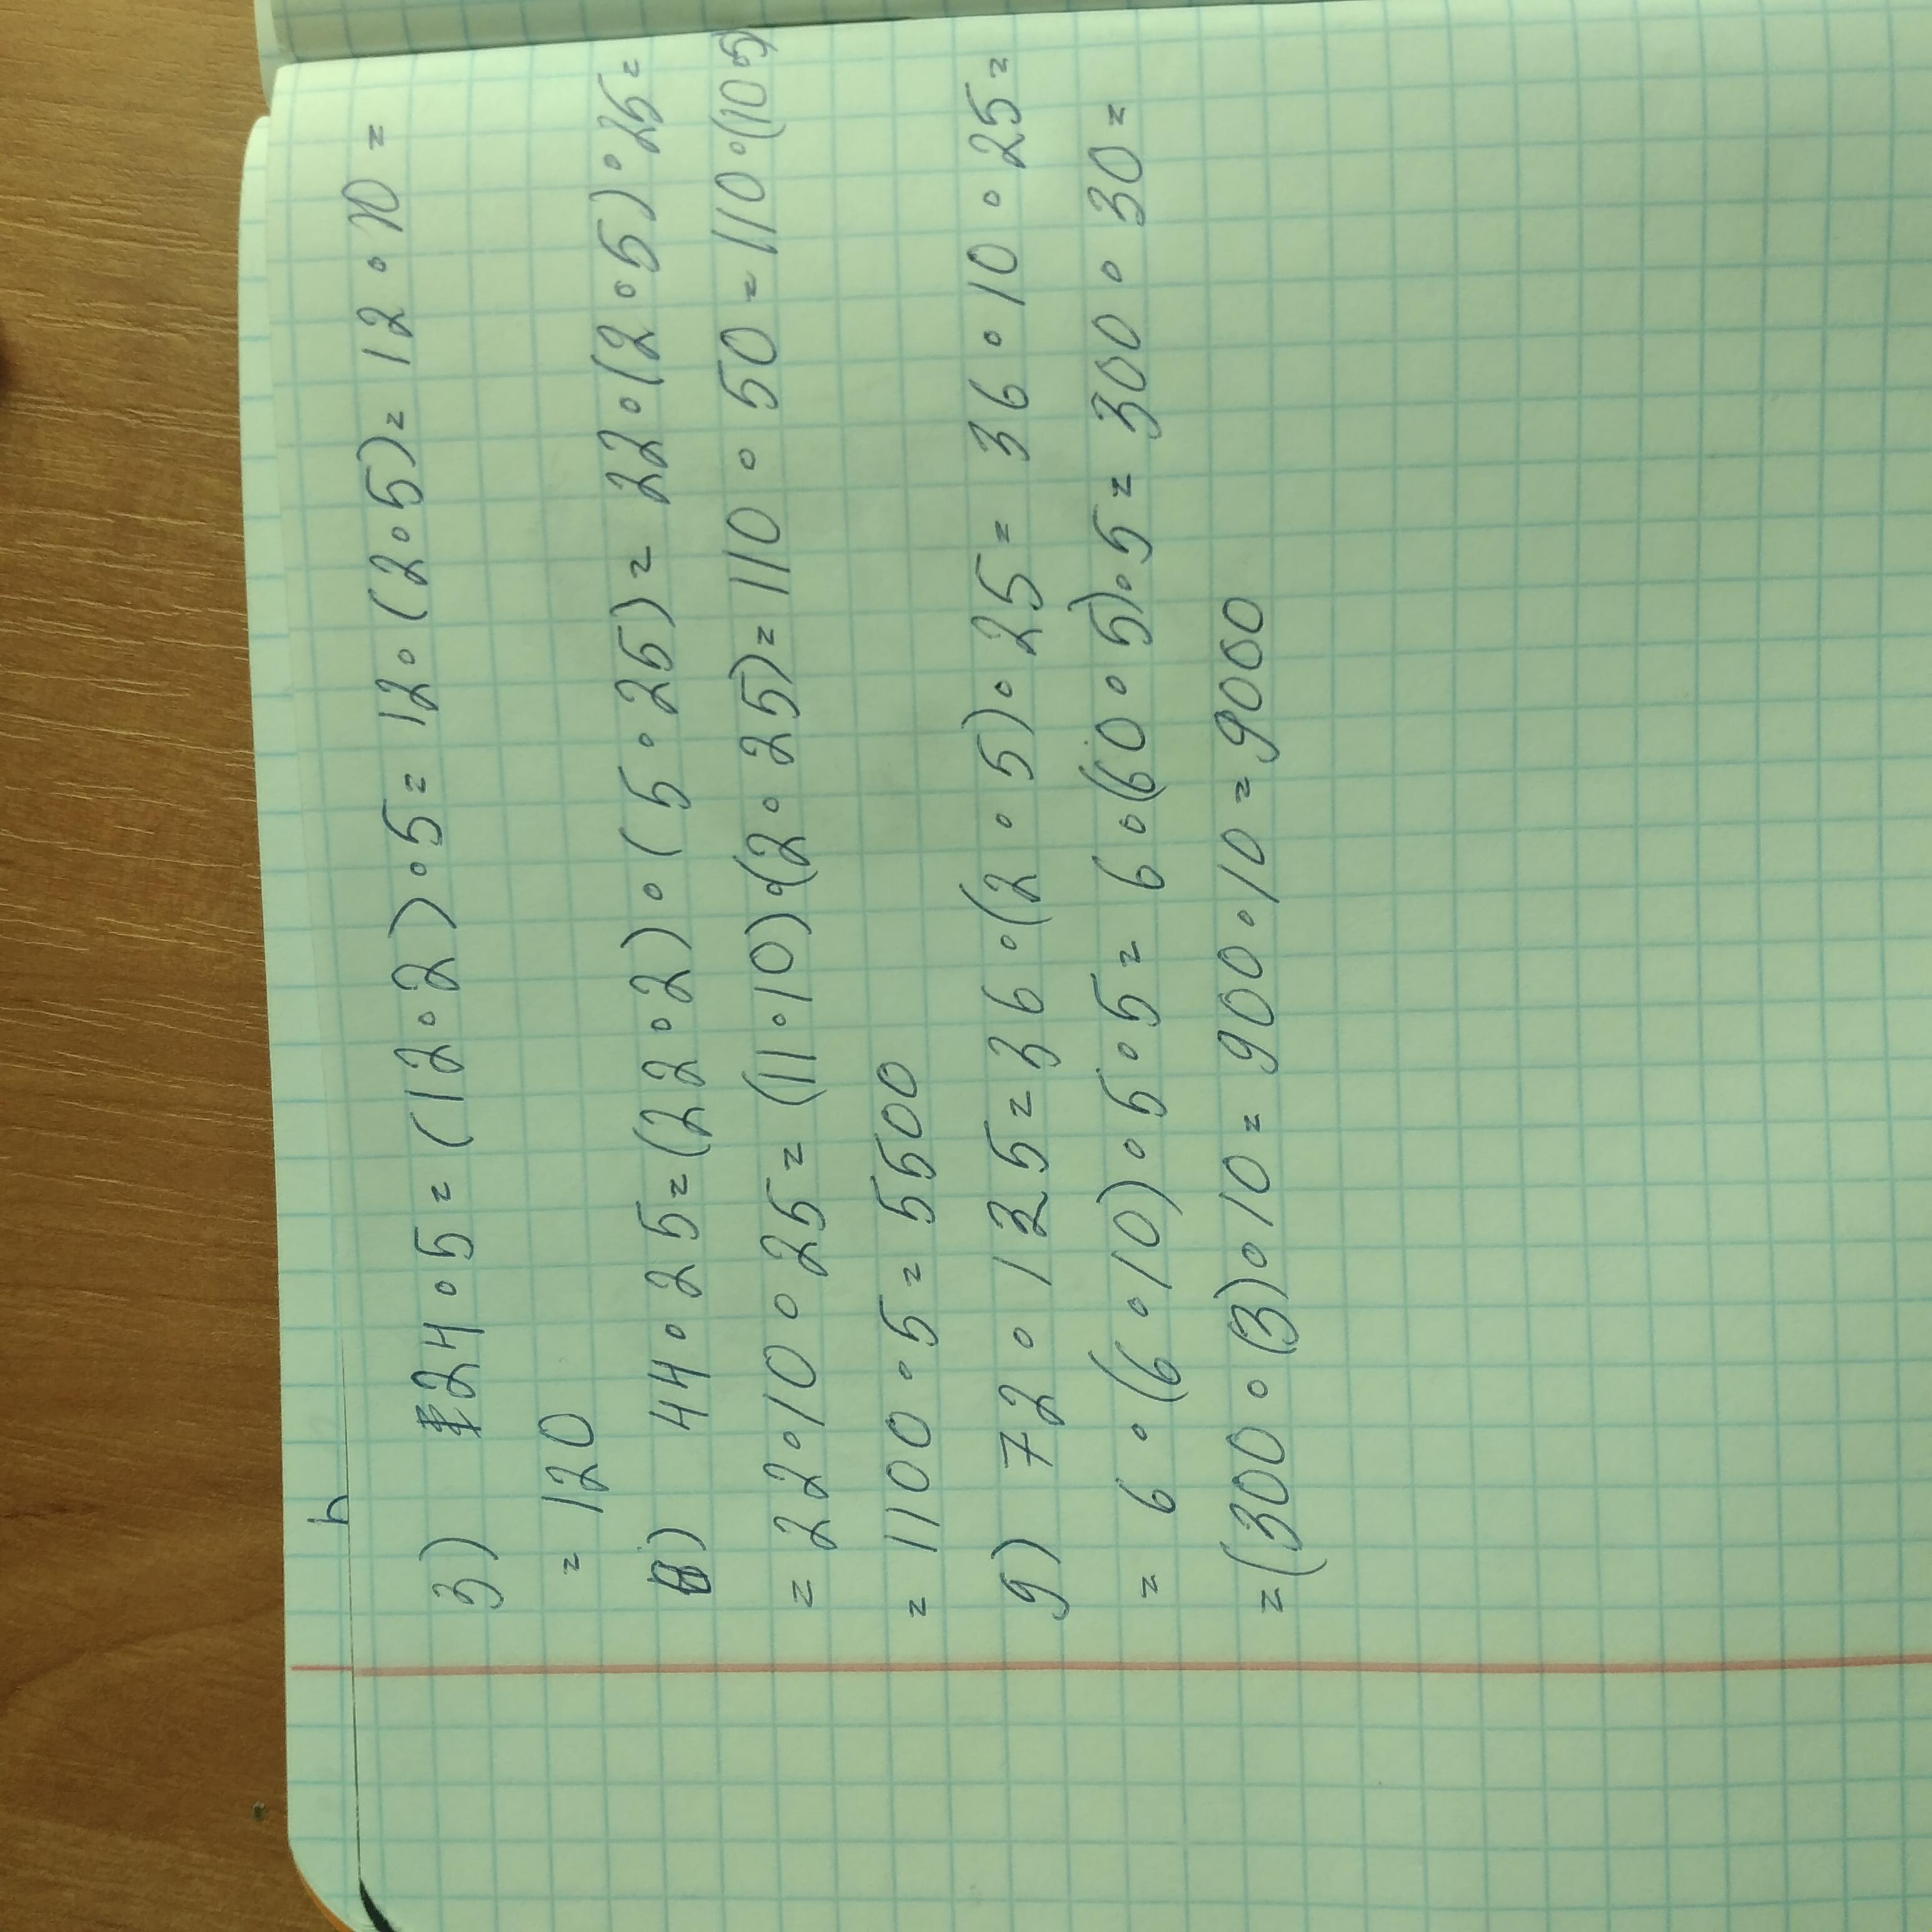 3) 24∘5=(12∘2)∘5=12∘(2∘5)=12∘10=
= 120
6) 44∘25=(22∘2)∘(5∘25)=22∘(2∘5)∘25=
=22∘10∘25=(11∘10)∘(2∘25)=110∘50=110∘(10∘5)
= 1100∘5=5500
9) 72∘125=36∘(2∘5)∘25=36∘10∘25=
= 6∘(6∘10)∘5∘5=6∘(60∘5)∘5=300∘30=
=(300∘(3)∘10=900∘10=9000